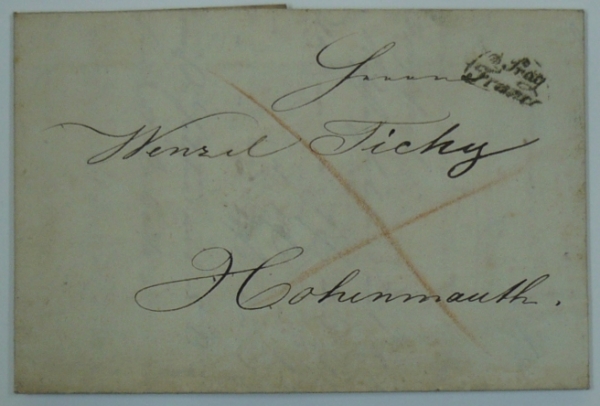 Herrn
Wenzel Tichy
Hohenmauth.
Prag
Franco